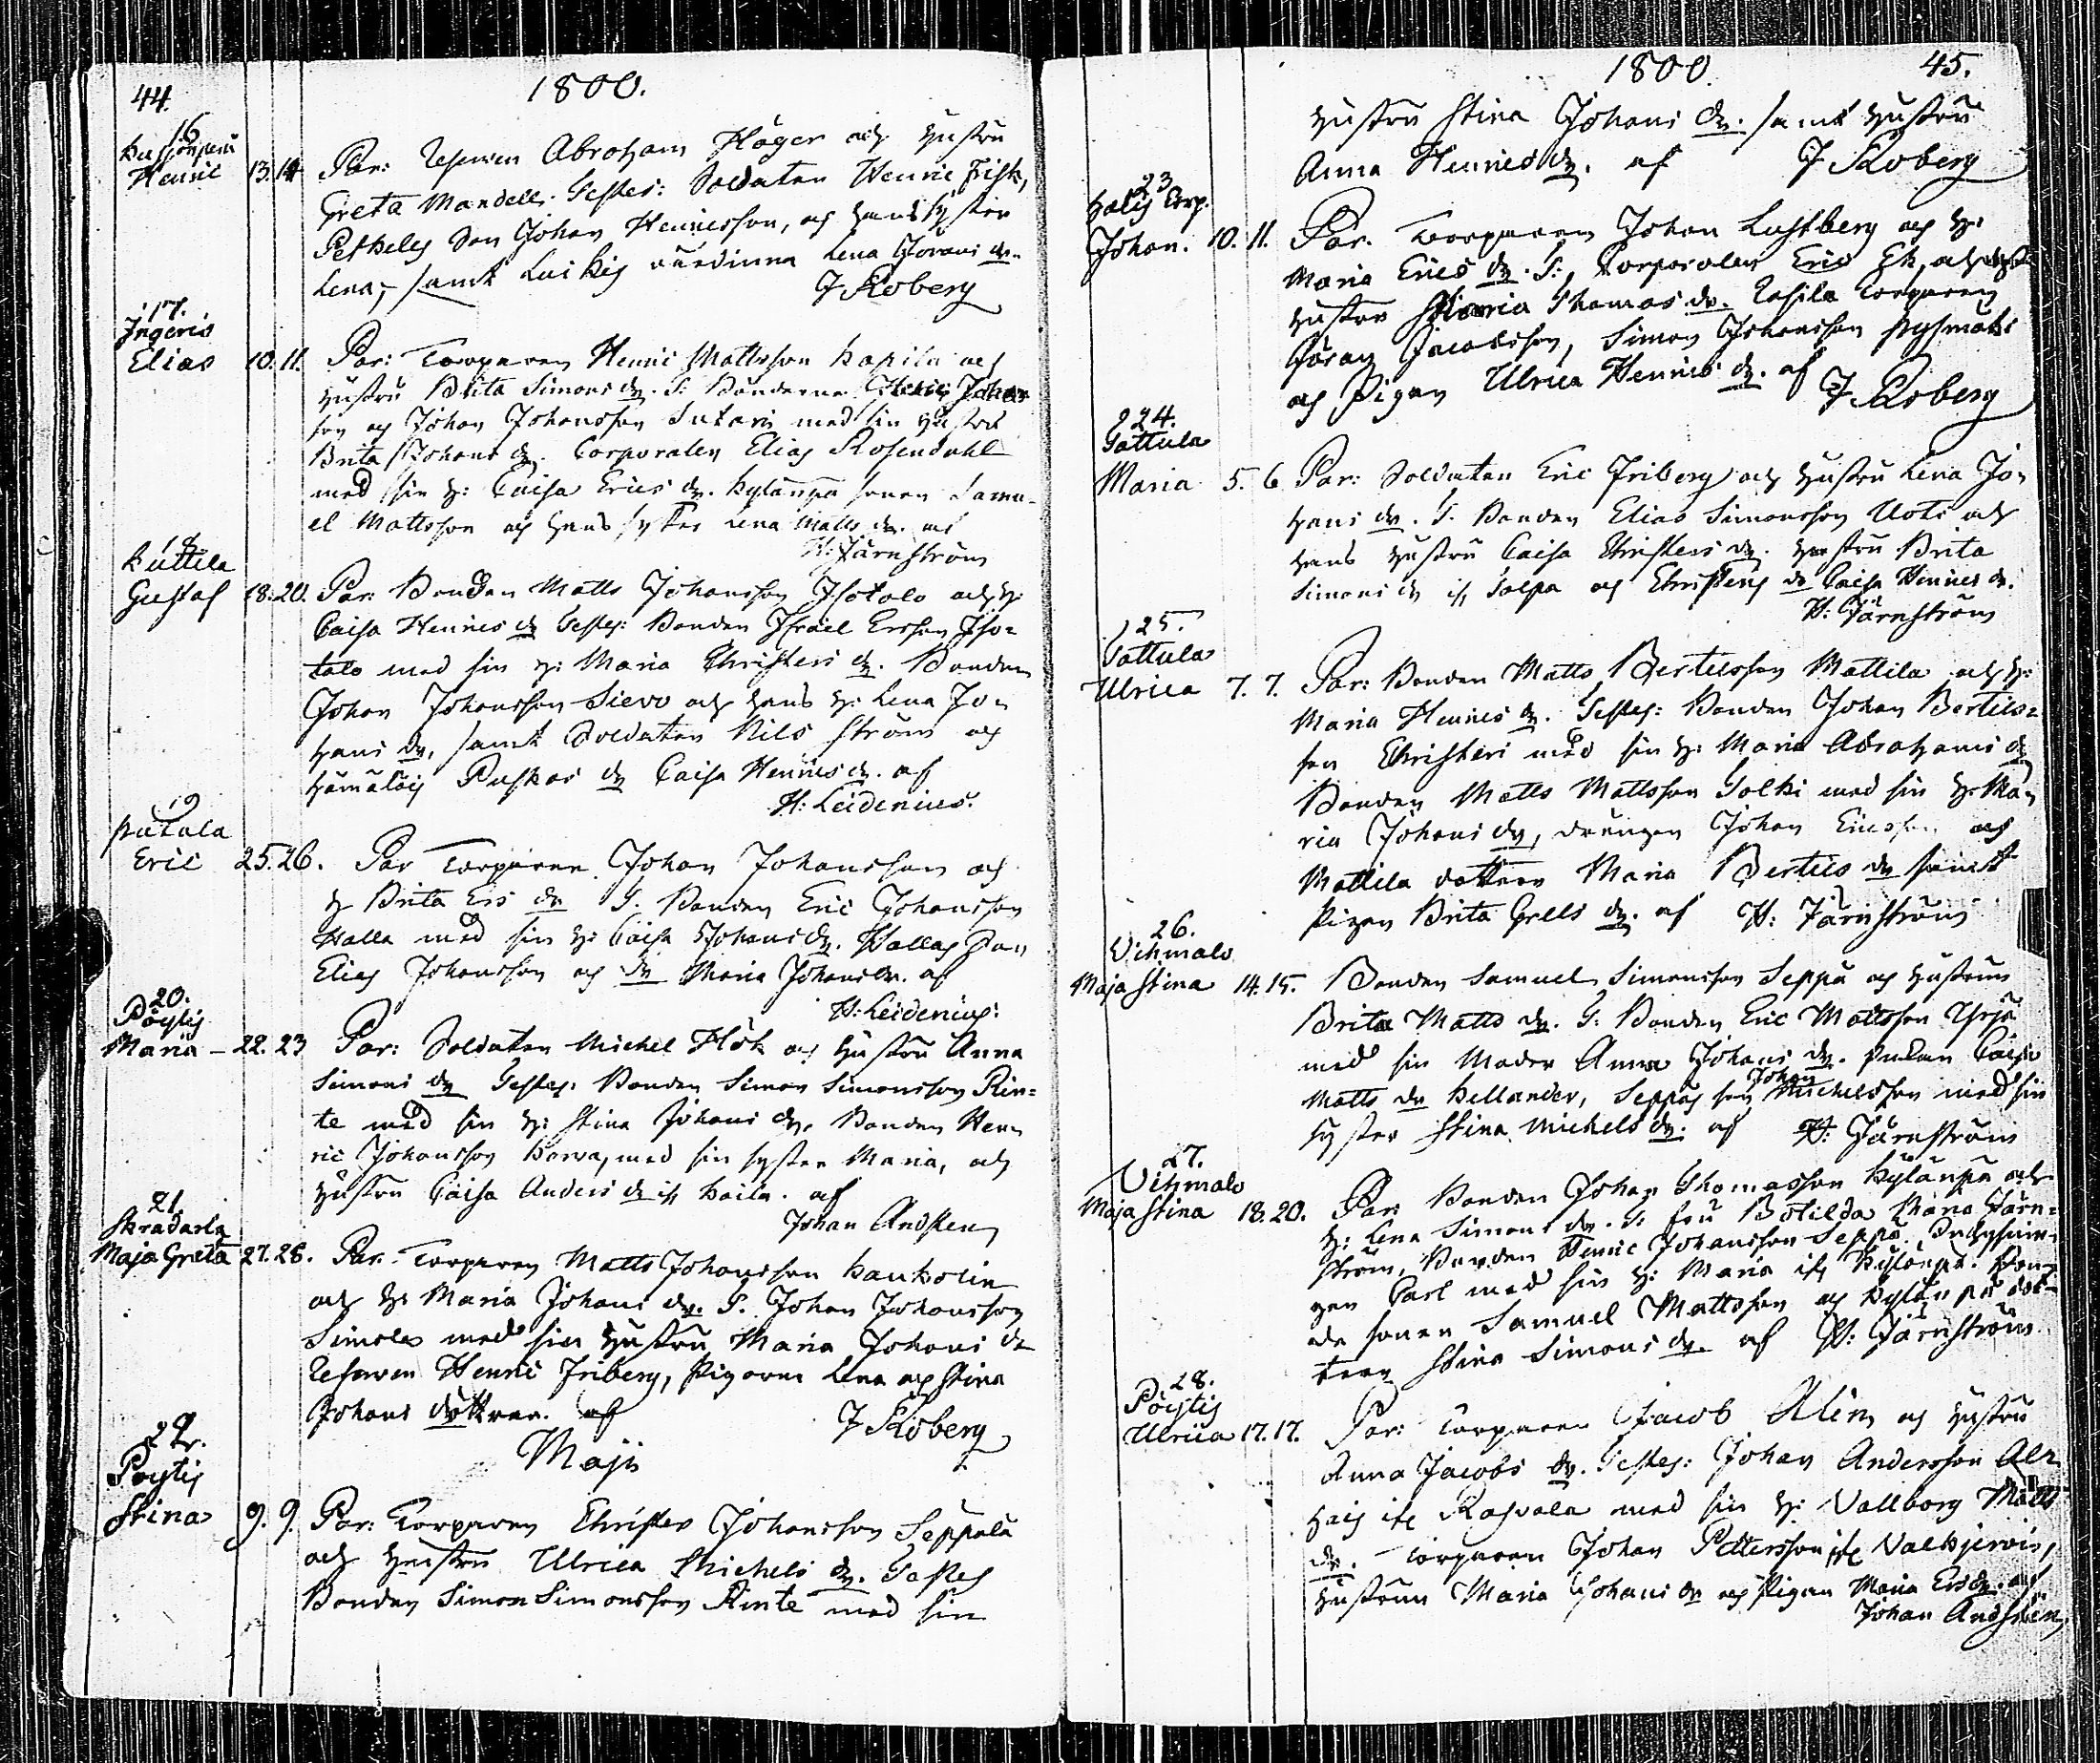 44.
1800.
16
Henric 13. 14
Par: Reserven Abraham Höger och hustru
Greta Mandell. Testes: Soldaten Henric Frisk,
Peskelis Son Johan Henricsson, och hans syster
Lena, samt värdinna Lena Görans dr.
J Roberg
17.
Ingeris
Elias 10. 11.
Par: Torparen Henric Mattsson Papila och
hustru Brita Simons dr. T: Bönderne
son och Johan Johansson Sutari med sin hustru
Brita Johans dr. Corporalen Elias Rosendahl
med sin h: Caisa Erics dr. Kylänpä sonen Samu-
el Mattsson och hans syster Lena Matts dr. af
H: Järnström
18
Kuttila
Gustaf 18. 20.
Par: Bonden Matts Johansson Isotalo och h:
Caisa Henrics dr Testes: Bonden Israel Ersson Iso-
talo med sin h: Maria Christers dr. Bonden
Johan Johansson Sievo och hans h: Lena Jo-
hans dr, samt Soldaten Nils Ström och
Puskas dr Caisa Henrics dr. af
H: Leidenius.
19
Eric 25. 26.
Par Torparen Johan Johansson och
h Brita Ers dr T. Bonden Eric Johansson
Halla med sin h: Caisa Johans dr. Hallas Son
Elias Johansson och dr Maria Johans dr. af
H: Leidenius.
20.
Pöytis
Maria – 22. 23
Par: Soldaten Michel Hök och hustru Anna
Simons dr Testes: Bonden Simon Simonsson Rin-
te med sin h: Stina Johans dr. Bonden Hen-
ric Johansson med sin syster Maria, och
hustru Caisa Anders dr if. af
Johan Andsten
21.
Skradarla
Maja Greta 27. 28.
Par. Torparen Matts Johansson
och h: Maria Johans dr. T. Johan Johansson
Simola med sin hustru Maria Johans dr
Reserven Henric Friberg, Pigorna Lena och Stina
Johans döttrar. af
J Roberg
Maji
22.
Pöytis
Stina 9. 9.
Par: Torparen Christer Johansson Seppälä
och hustru Ulrica Michels dr. Testes
Bonden Simon Simonsson Rinte med sin
1800. 45.
hustru Stina Johans dr. samt hustru
Anna Henrics dr. af J Roberg
23
Johan. 10. 11.
Par. Torparen Johan Lustberg och h:
Maria Erics dr. T:, Corporalen Eric Ek, och
hustru Maria Thomas dr. Torparen
Göran Jacobsson, Simon Johansson
och Pigan Ulrica Henrics dr. af
J Roberg
24.
Tattula
Maria 5. 6
Par: Soldaten Eric Friberg och hustru Lena Jo-
hans dr. T. Bonden Elias Simonsson Uoti och
hans hustru Caisa Christers dr. hustru Brita
Simons dr if Talpa och Christers dr Caisa Henrics dr.
H: Järnström
25.
Tattula
Ulrica 7. 7.
Par: Bonden Matts Bertilsson Mattila och h:
Maria Henrics dr. Testes: Bonden Johan Bertils-
son Christeri med sin h: Maria Abrahams dr
Bonden Matts Mattsson Tolki med sin h: Ma-
ria Johans dr, drängen Johan Ericsson och
Mattila dottren Maria Bertils dr samt
Pigan Brita Grels dr. af H: Järnström
26.
Vihmalo
Maja Stina 14. 15.
Bonden Samuel Simonsson Seppä och hustrun
Brita Matts dr. T: Bonden Eric Mattsson Yrjä
med sin Moder Anna Johans dr. Enkan Caisa
Matts dr Hellander, Seppäs son Johan Michelsson med sin
syster Stina Michels dr. af H: Järnström
27.
Vihmalo
Maja Stina 18. 20.
Par: Bonden Johan Thomasson Kylänpä och
h: Lena Simons dr. T: fru Botilda Maria Järn-
ström, Bonden Henric Johansson Seppä.
gen Carl med sin h: Maria if Kylänpä.
de sonen Samuel Mattsson och Kylänpä dot-
tren Stina Simons dr. af H: Järnström
28.
Pöytis
Ulrica 17. 17.
Par: Torparen Jacob Alen och hustru
Anna Jacobs dr. Testes: Johan Andersson Al-
med sin h: Vallborg Matts
dr. Torparen Johan Pettersson if Valkjervi,
hustrun Maria Johans dr och Pigan Maria Ers dr. af
Johan Andsten